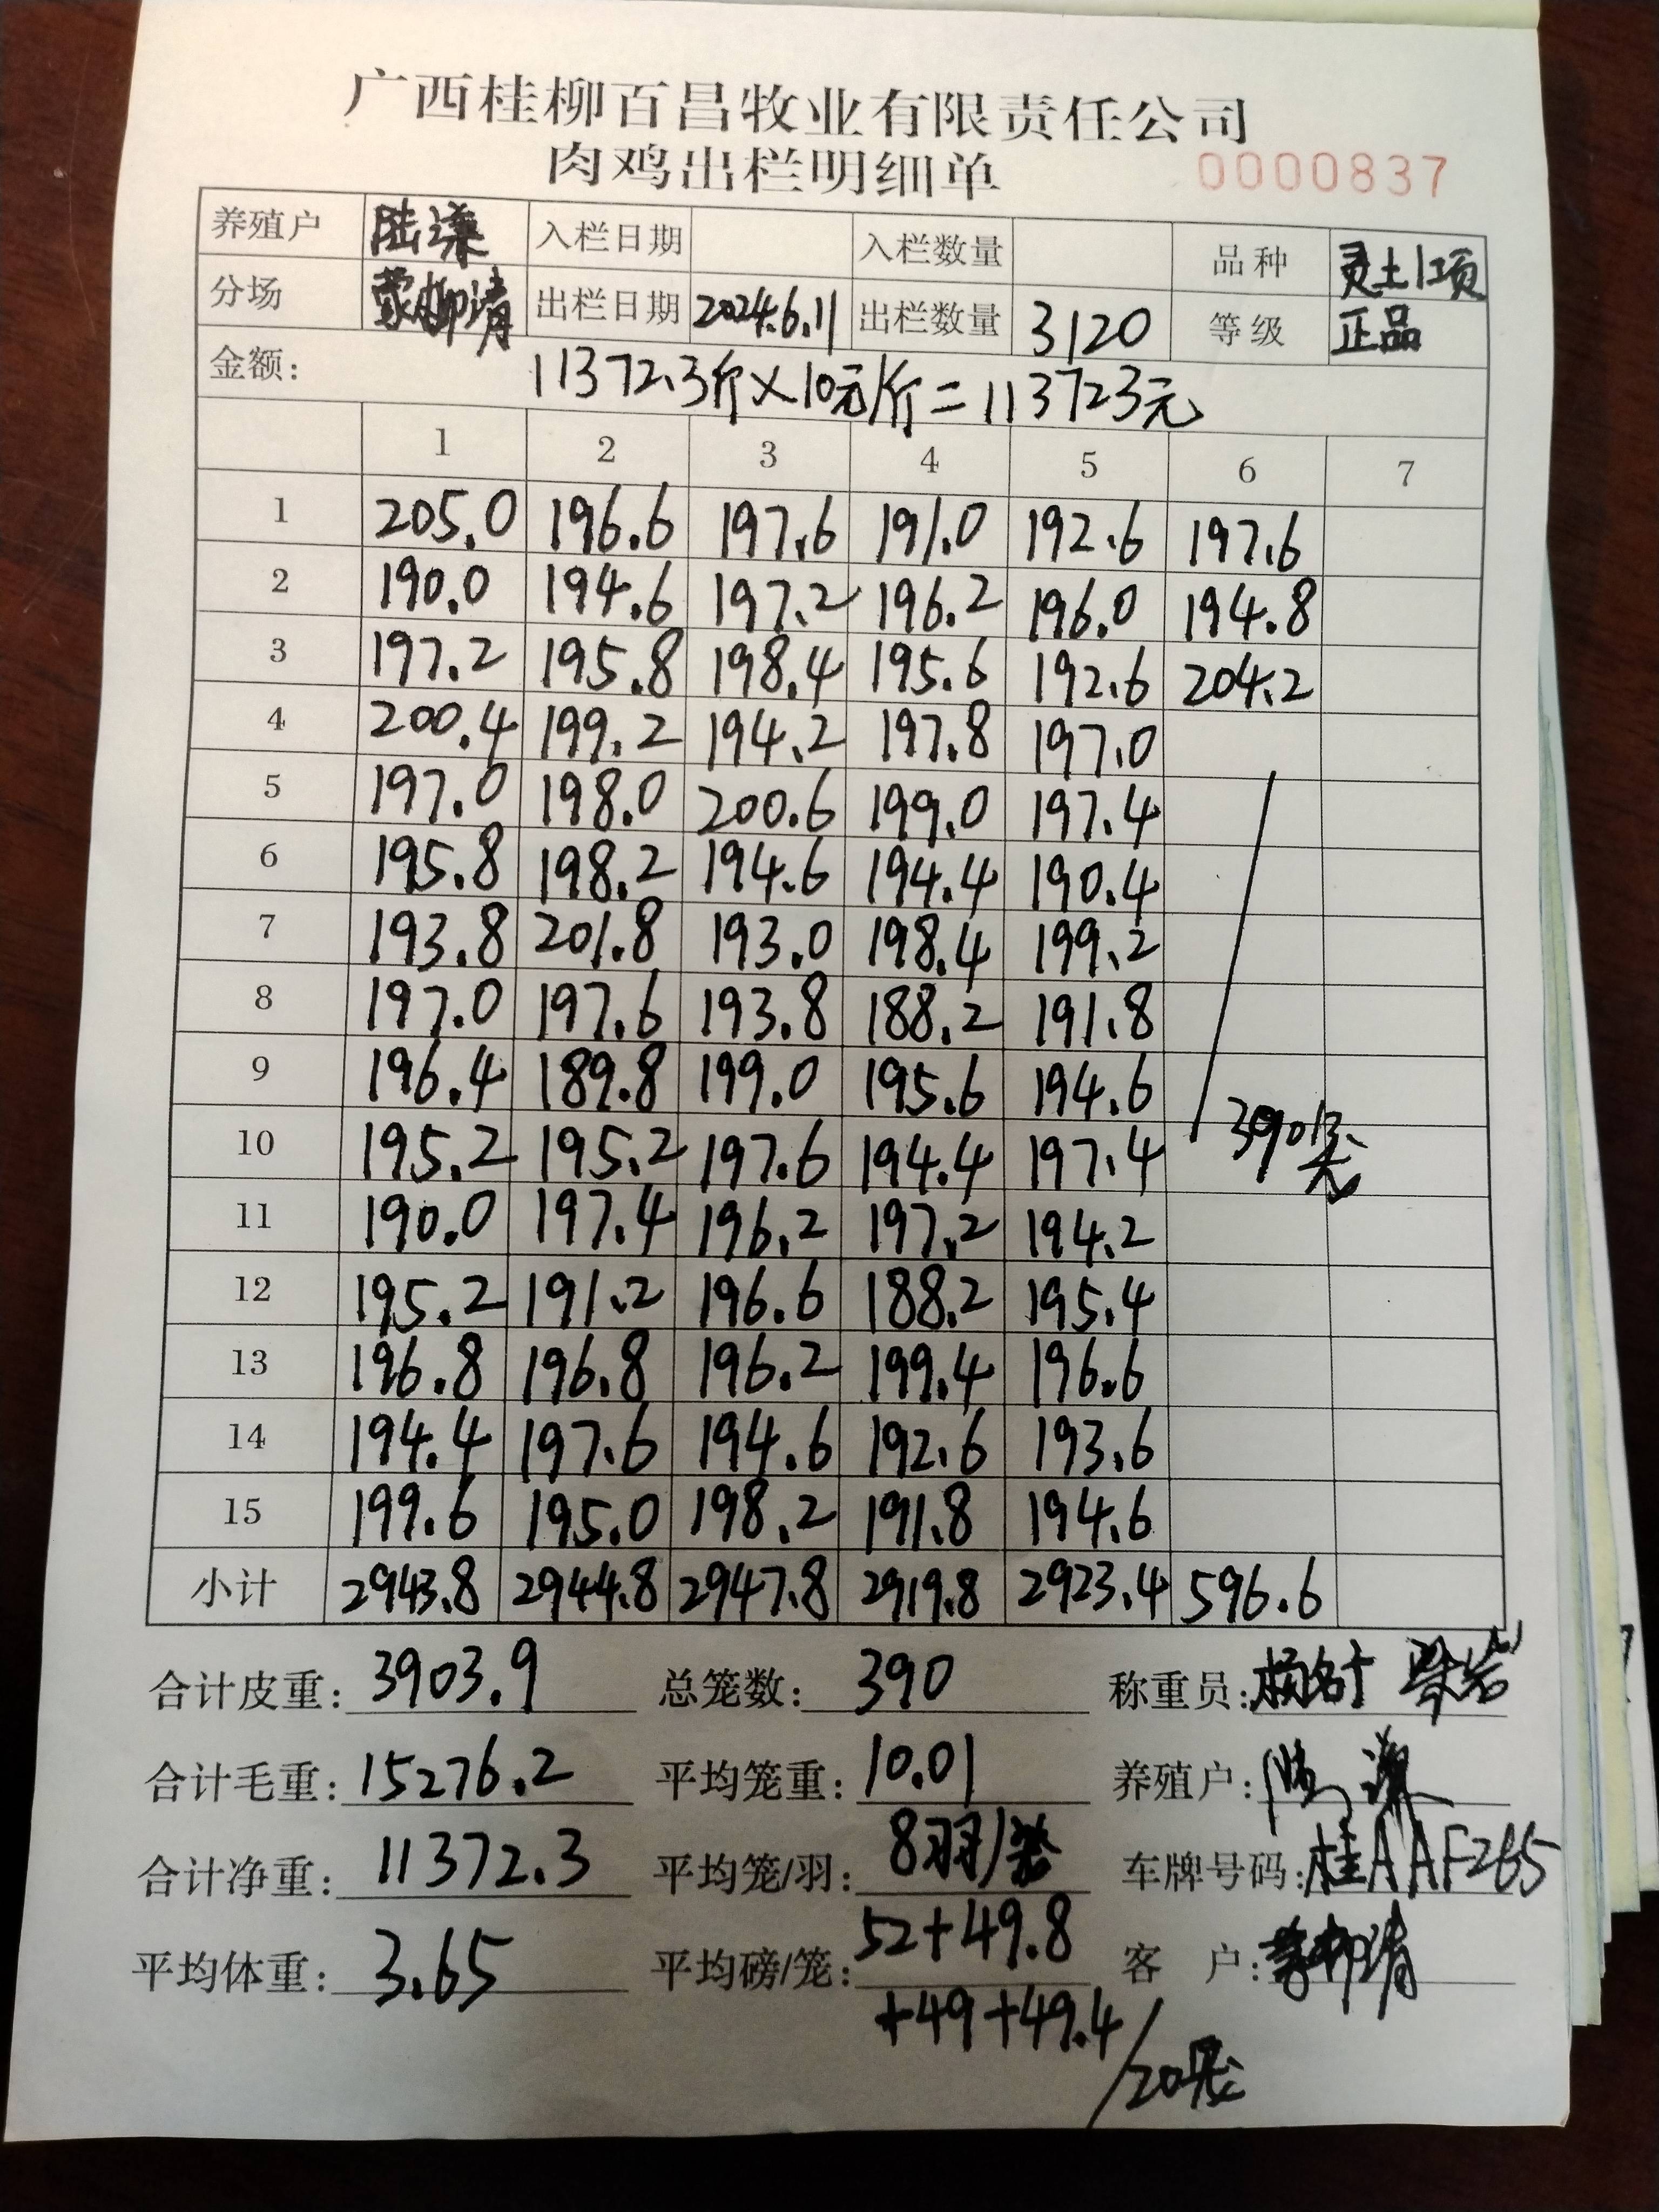 广西桂柳百昌牧业有限责任公司
肉鸡出栏明细单 0000837
养殖户 陆 入栏日期 入栏数量 品种 灵土1项
分场 蒙柳清 出栏日期 2024.6.11 出栏数量 3120 等级 正品
金额: 11372.3斤×10元/斤=113723元
1 2 3 4 5 6 7
1 205.0 196.6 197.6 191.0 192.6 197.6
2 190.0 194.6 197.2 196.2 196.0 194.8
3 197.2 195.8 198.4 195.6 192.6 204.2
4 200.4 199.2 194.2 197.8 197.0
5 197.0 198.0 200.6 199.0 197.4
6 195.8 198.2 194.6 194.4 190.4
7 193.8 201.8 193.0 198.4 199.2
8 197.0 197.6 193.8 188.2 191.8
9 196.4 189.8 199.0 195.6 194.6
10 195.2 195.2 197.6 194.4 197.4 390
11 190.0 197.4 196.2 197.2 194.2
12 195.2 191.2 196.6 188.2 195.4
13 196.8 196.8 196.2 199.4 196.6
14 194.4 197.6 194.6 192.6 193.6
15 199.6 195.0 198.2 191.8 194.6
小计 2943.8 2944.8 2947.8 2919.8 2923.4 596.6
合计皮重: 3903.9 总笼数: 390 称重员:
合计毛重: 15276.2 平均笼重: 10.01 养殖户:
合计净重: 11372.3 平均笼/羽: 8羽/笼 车牌号码: 桂AAF265
平均体重: 3.65 平均磅/笼: 52+49.8 客 户:
+49+49.4
/20